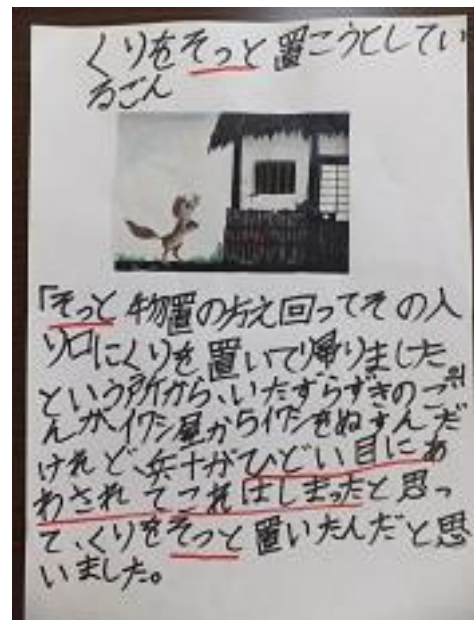 くりをそっと置こうとしてい
るごん
「そっと物置の方え回ってその入
り口にくりを置いて帰りました
という所から、いたずらずきのご
んが、イワシ屋からイワシをぬすんだ
けれど、兵十がひどい目にあ
わされてこれはしまったと思っ
て、くりをそっと置いたんだと思
いました。